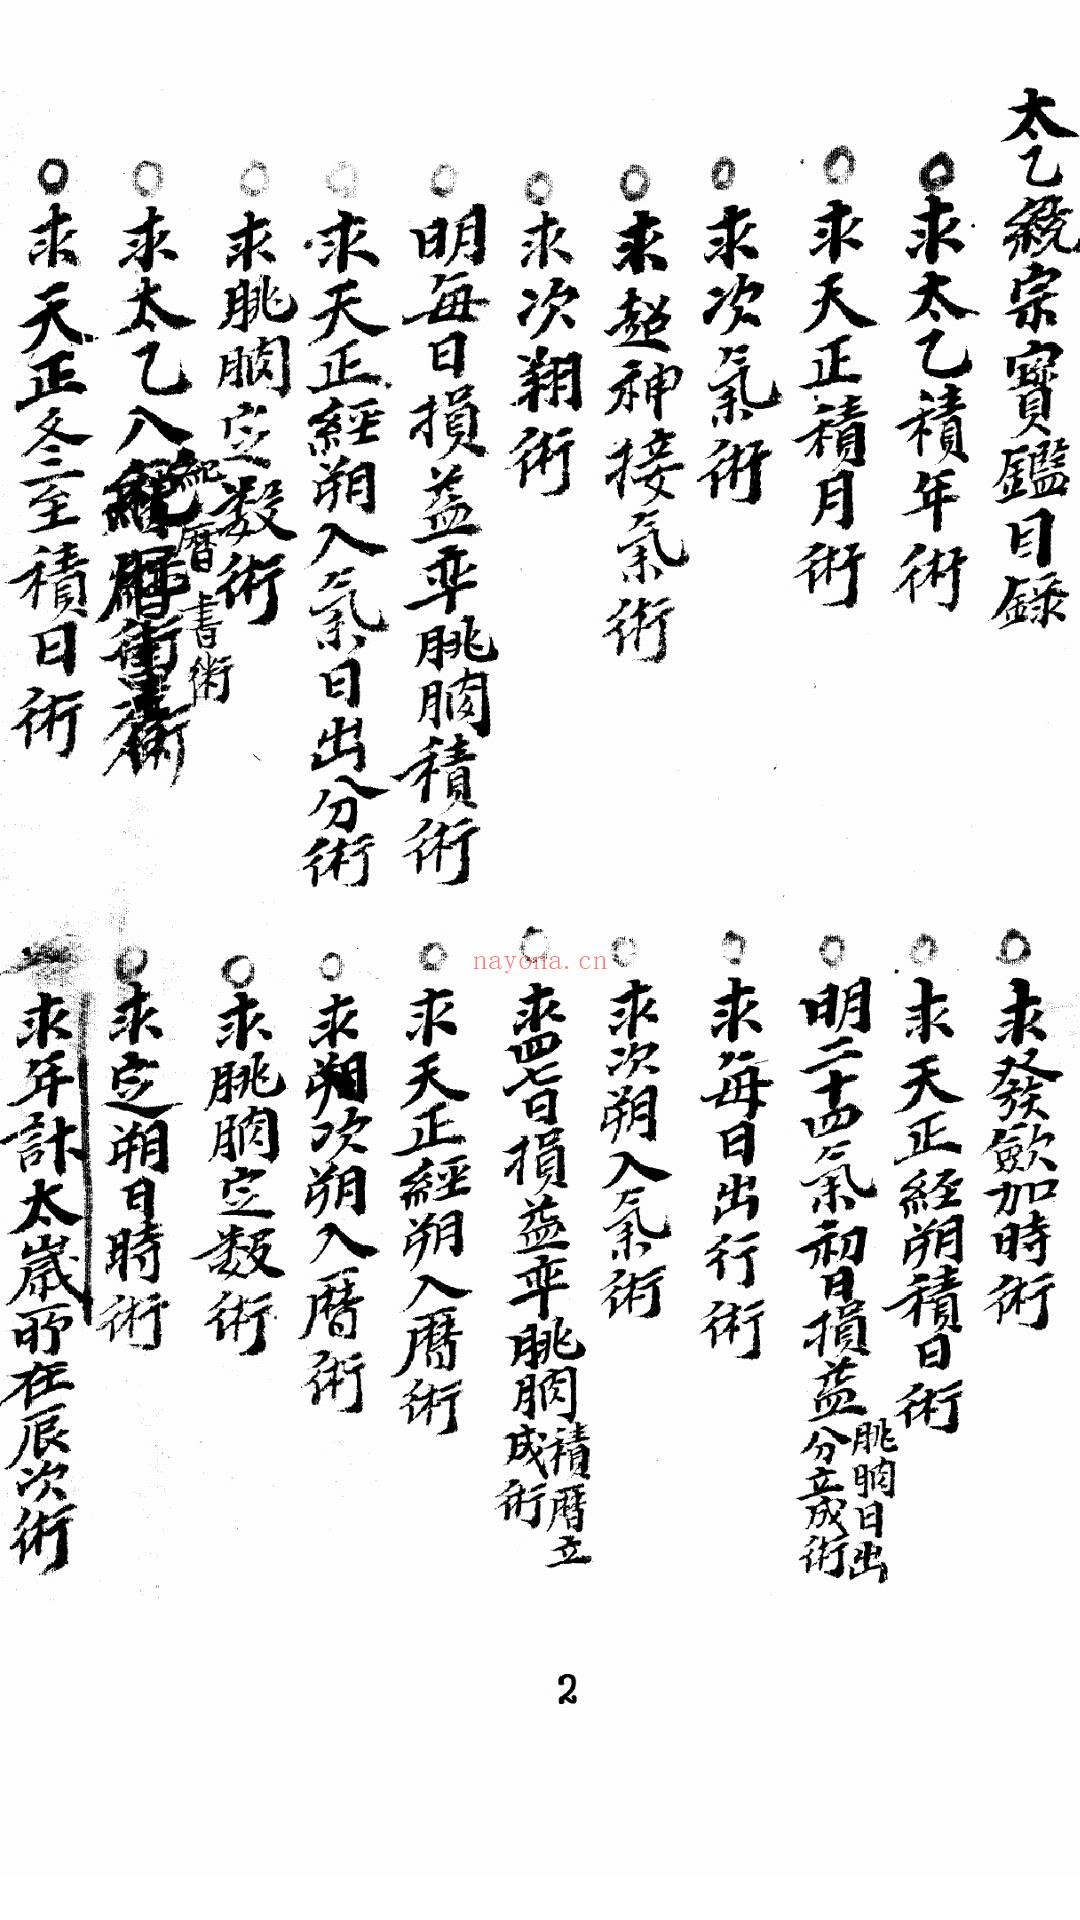 太乙統宗寶鑑目錄
求太乙積年術
求天正積月術
求次氣術
求超神接氣術
求次朔術
明每日損益率朓朒積術
求天正經朔入氣日出分術
求朓朒定数術
求太乙入紀暦書術
求天正冬至積日術
求發斂加時術
求天正経朔積日術
明二十四氣初日損益朓朒日出分立成術
求每日出行術
求次朔入氣術
求四七日損益率朓朒積暦立成術
求天正經朔入暦術
求次朔入暦術
求朓朒定数術
求定朔日時術
求年計太歲所在辰次術
nayona.cn
2